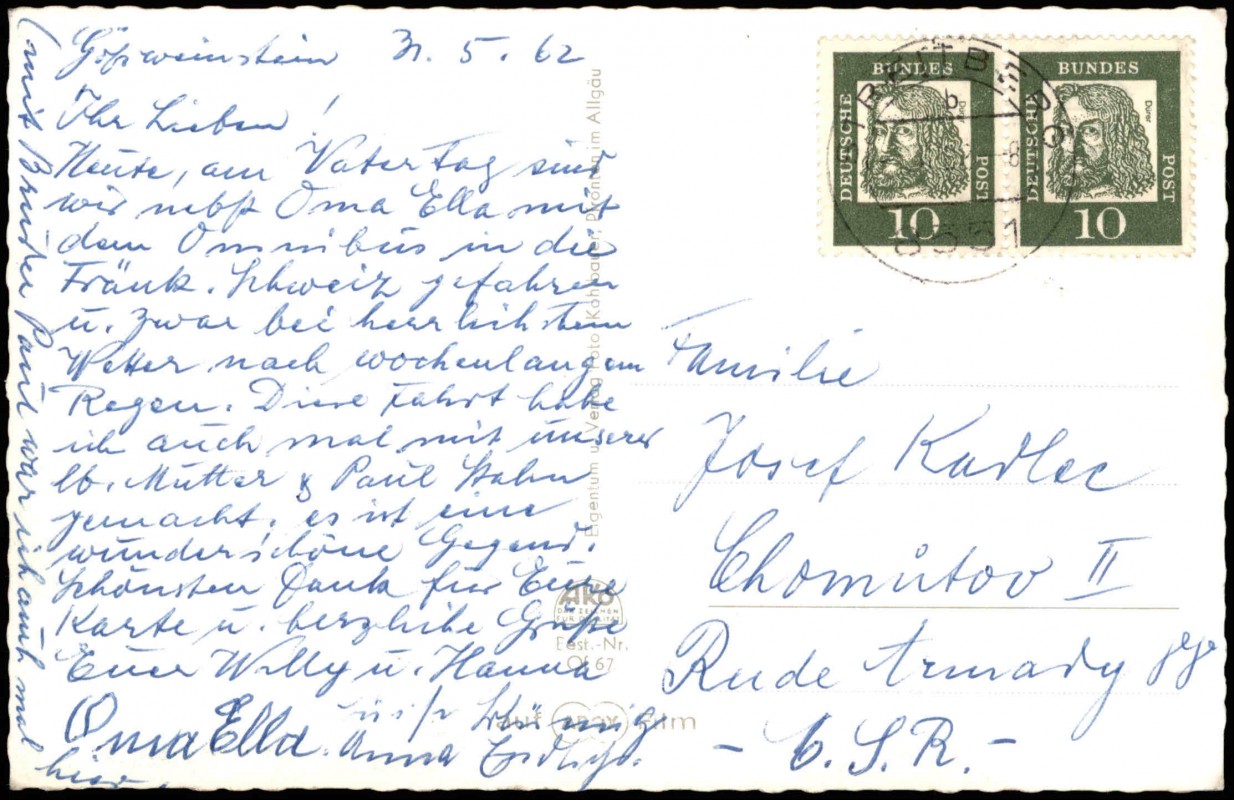 Gößweinstein 31. 5. 62
Ihr Lieben!
Heute, am Vatertag sind
wir nebst Oma Ella mit
dem Omnibus in die
Fränk. Schweiz gefahren
u. zwar bei herrlichstem
Wetter nach wochenlangem
Regen. Diese Fahrt habe
ich auch mal mit unserer
lb. Mutter & Paul Hahn
gemacht, es ist eine
wunderschöne Gegend.
Schönsten Dank für Eure
Karte u. herzliche Grüße
Euer Willy u. Hanna
Oma Ella
Anna
(mit Bruder Paul war ich auch mal
hier.
Eigentum u. Verlag Foto-Kohlbauer, Pfronten im Allgäu
AKO
DAS ZEICHEN
FÜR QUALITÄT
Best.-Nr.
Of 67
auf ADOX Film
DEUTSCHE
BUNDES
POST
Dürer
10
DEUTSCHE
BUNDES
POST
Dürer
10
b
8551
Familie
Josef Kadlec
Chomutov II
Rude Armady
- C.S.R. -